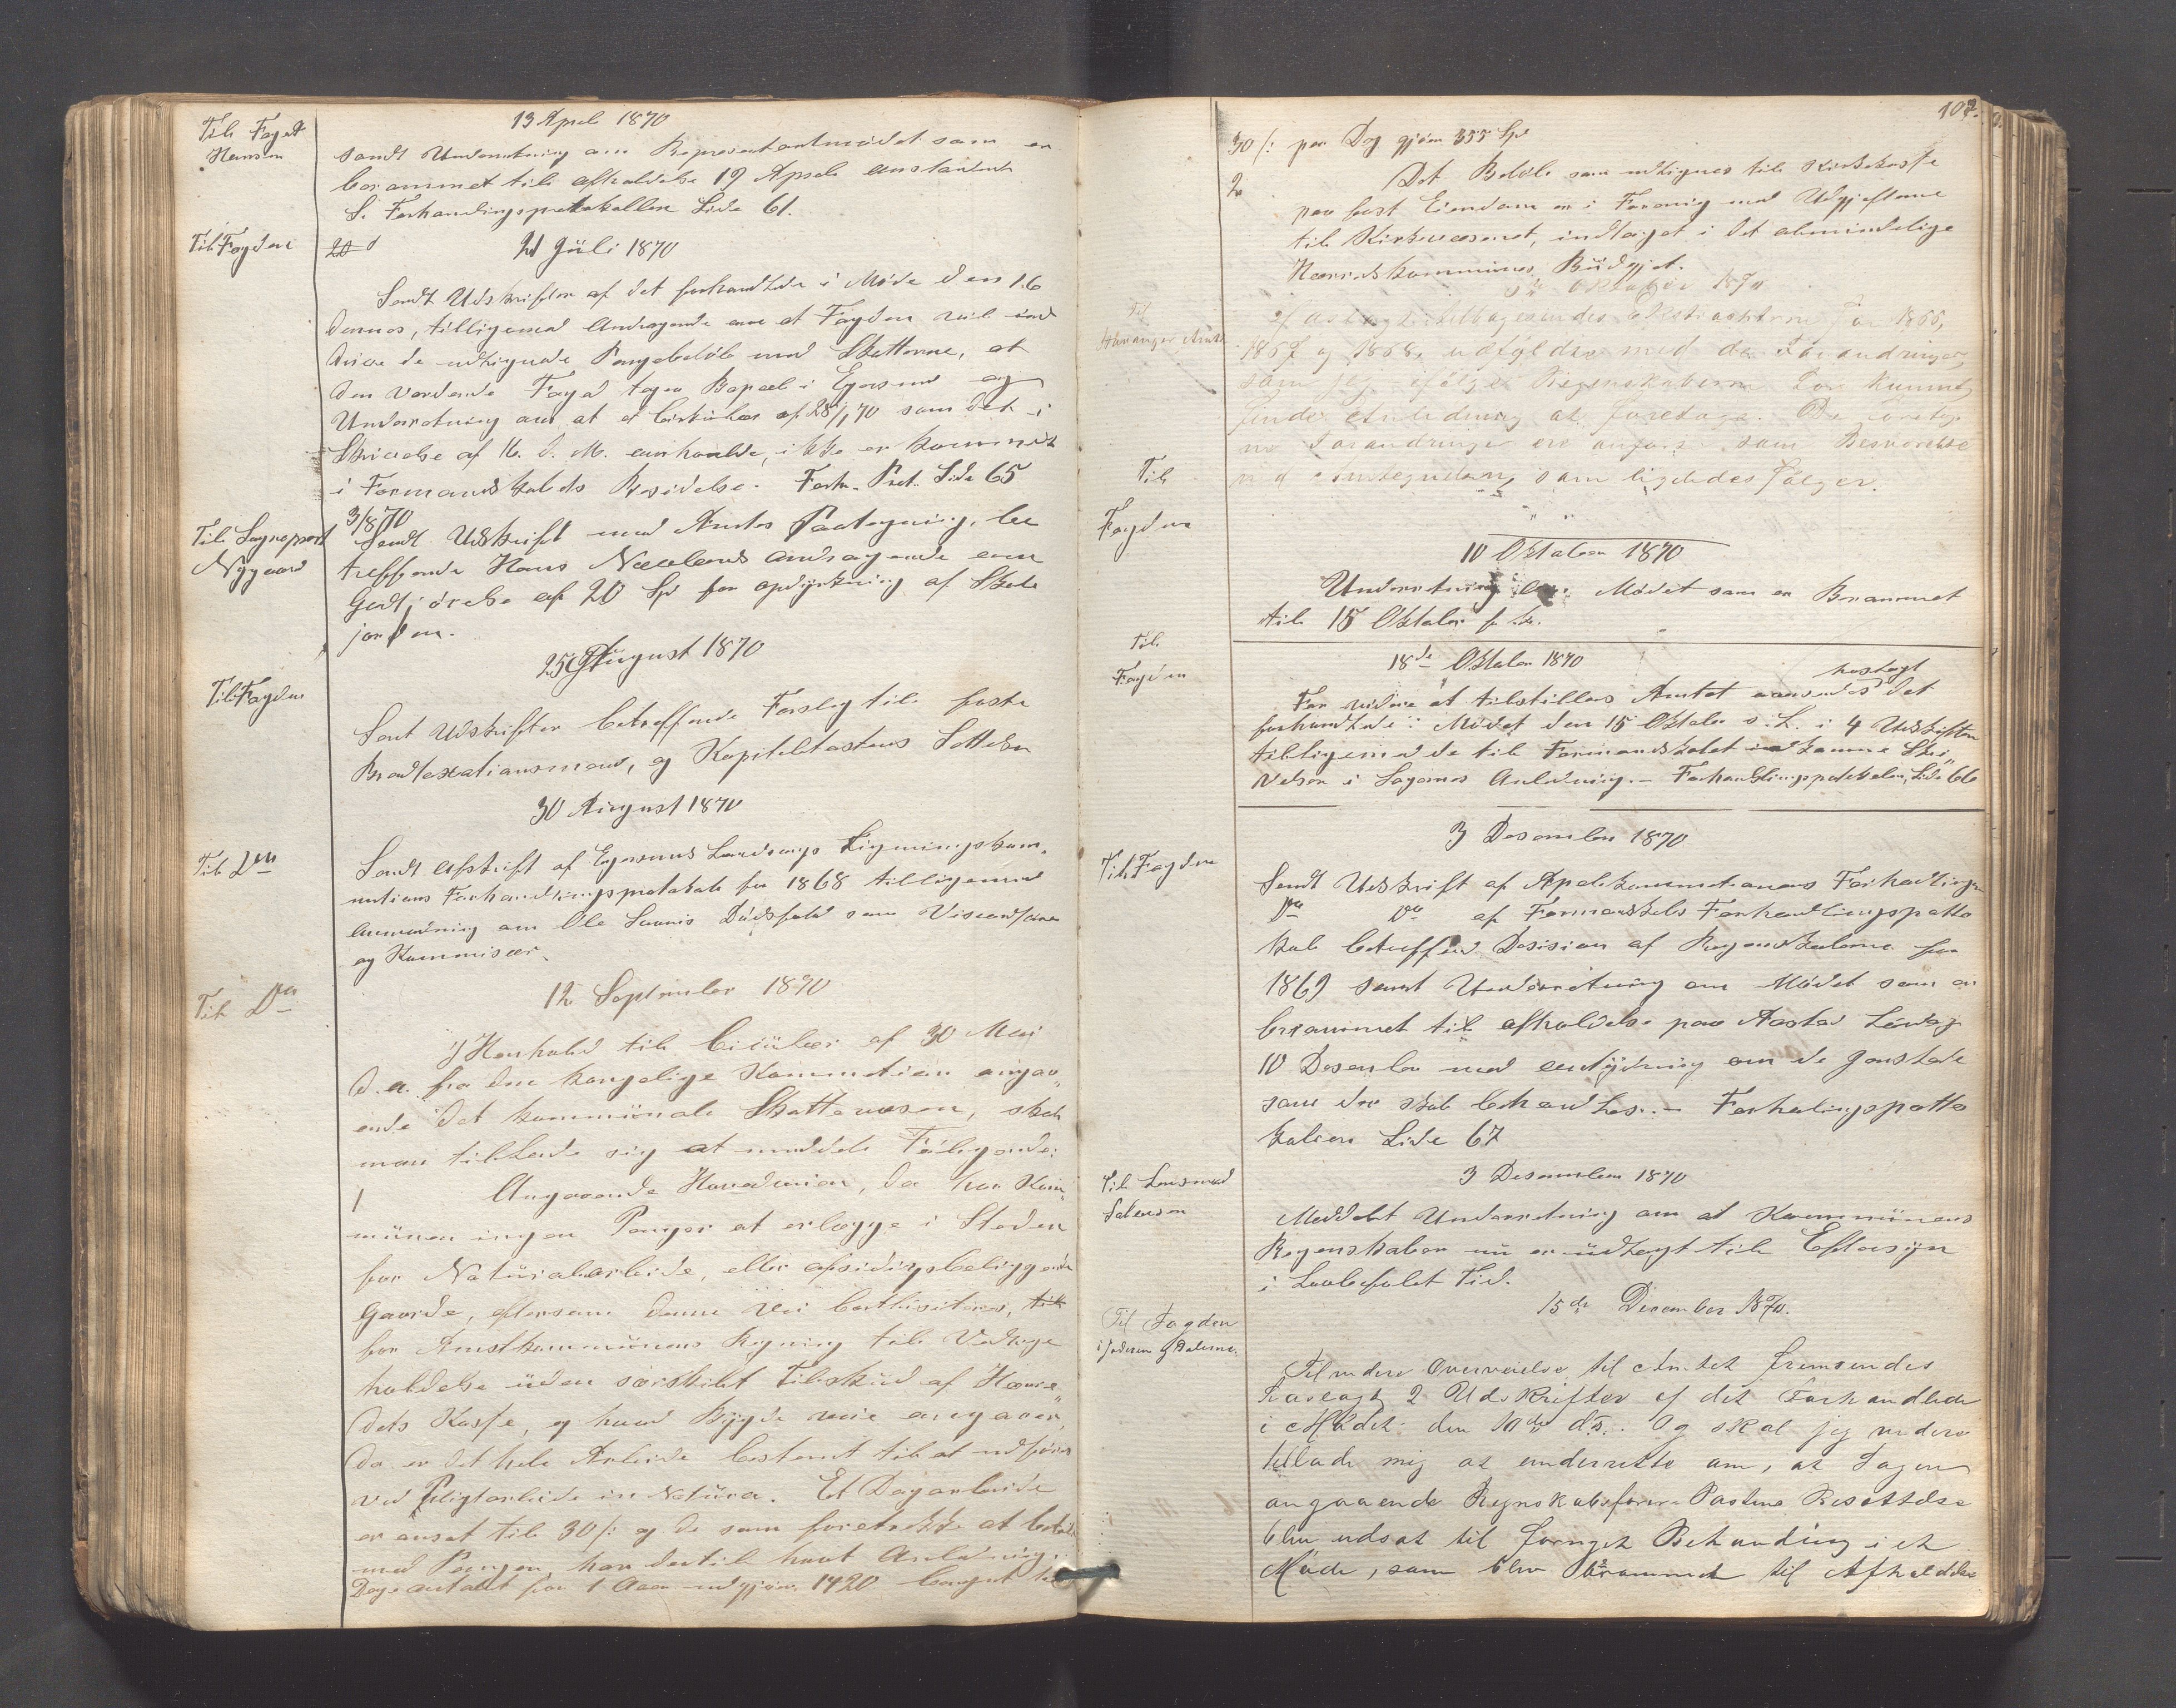 Til Foged
Hansen
13 April 1870
sendt Underretning om Representantmødet som er
berammet til afholdelse 19 April
S. Forhandlingsprotokollen Side 61.
Til Fogden
21 Juli 1870
Sendt Udskrifter af det forhandlede i Møde den 16
dennes, tilligemed Andragende om at Fogden vil ind
drive de udlignede Pengebeløb med Skatterne, at
den værdende Foged tager Bopæl i Egersund og
Underretning om at et Cirkulær af 28/1 70 som det i
Skrivelse af 16 d. M. omhandlede, ikke er kommet
i Formandskabets Besidelse. Forh. Prot. Side 65
Til Sogneprest
Nygaard
3/8/70
Sendt Udskrift med Amtes Paategning, be
treffende Hans Andragende om
Godtjørelse af 20 Spd for opdyrkning af Skole
jorden.
Til Fogden
25 August 1870
Sent Udskrifter betreffende Forslag til faste
Brandtaxationsmænd, og Kapiteltaxtens Settelse
30 August 1870
Til Do
Sendt Afskrift af Egersunds Landsogns Ligningskom„
mitions Forhandlingsprotokol for 1868 tilligemed
Anmodning om Ole Dødsfald som
og Kommisær
12 September 1870
Til Do
I Henhold til Cirkulær af 30 Mai
d. a. fra den kongelige Kommition angaa„
ende det kommunale Skattevæsen, skal
man tillade sig at meddele Følgende:
1 Angaaende Hovedveien, da har Kom„
munen ingen Penger at erlægge i Steden
for Naturalarbeide, eller afsidigsbeliggende
Gaarde, eftersom denne Vei
for Amtskommunens Regning til Vedlige
holdelse uden særskilt Tilskud af Herre„
dets Kasse, og hvad Bygdeveie angaaer,
da er det hele Arbeide bestemt til at udføres
ved Pligtarbeide in Natura. Et Dagarbeide
er ansat til 30 s: og de som foretrekke at betale
med Penger, har dertil havt Anledning.
Dageantalet for 1 Aar udgjør 1420 beregnet til
107.
30 s: per Dag gjør 355 Spd
2 Det Beløb som udlignes til Kirkekasse
paa fast Eiendom er i Forening med Udgifterne
til Kirkevæsenet, indtaget i det almindelige
Herredskommunes Budgjet.
Oktober 1870
Til
Stavanger Amt
tilbagesendes Ekstrakterne for 1866,
1867 og 1868, udfyldte med de Forandringer,
som jeg ifølge Regnskaberne har kunnet
finde Anledning at foretage. De foretag
ne Forandringer ere anført som Besvarelse
som ligeledes følger.
Til
Fogden
10 Oktober 1870
Underretning om Mødet som er Berammet
til 15 Oktober
Til
Fogden
18de Oktober 1870
For videre at tilstilles Amtet oversendes hoslagt det
forhandlede i Mødet den 15 Oktober i 4 Udskrifter
tilligemed de til Formandskabet indkomne Skri„
velser i Sagernes Anledning. – Forhandlingsprotokolen, Side 66
3 Desember 1870
Til Fogden
Sendt Udskrift af Forhandlinger
Do Do af Formandskabets Forhandlingsprotto
kol betreffend Desision af Regnskaberne for
1869 samt Underretning om Mødet som er
berammet til afholdelse paa Aastad Løvdag
10 Desember med antydning om de Gjenstande
som der skal behandles. – Forhandlingsprotto
kolen Side 67
3 Desember 1870
Til Lensmand
Salvesen
Meddelt Underretning om at Kommunens
Regenskaber nu er udlagt til Eftersyn
i Lovbefalet Tid.
15de December 1870.
Til Fogden
i Jæderen og Dalerne.
Til videre Overveielse til Amtet fremsendes
hoslagt 2 Udskrifter af det Forhandlede
i Mødet den 10de ds. Og skal jeg videre
tillade mig at underrette om, at Sagen
angaaende Regnskabsfører Postens Besættelse
blev udsat til fornyet Behandling i et
Møde, som blev berammet til Afholdelse